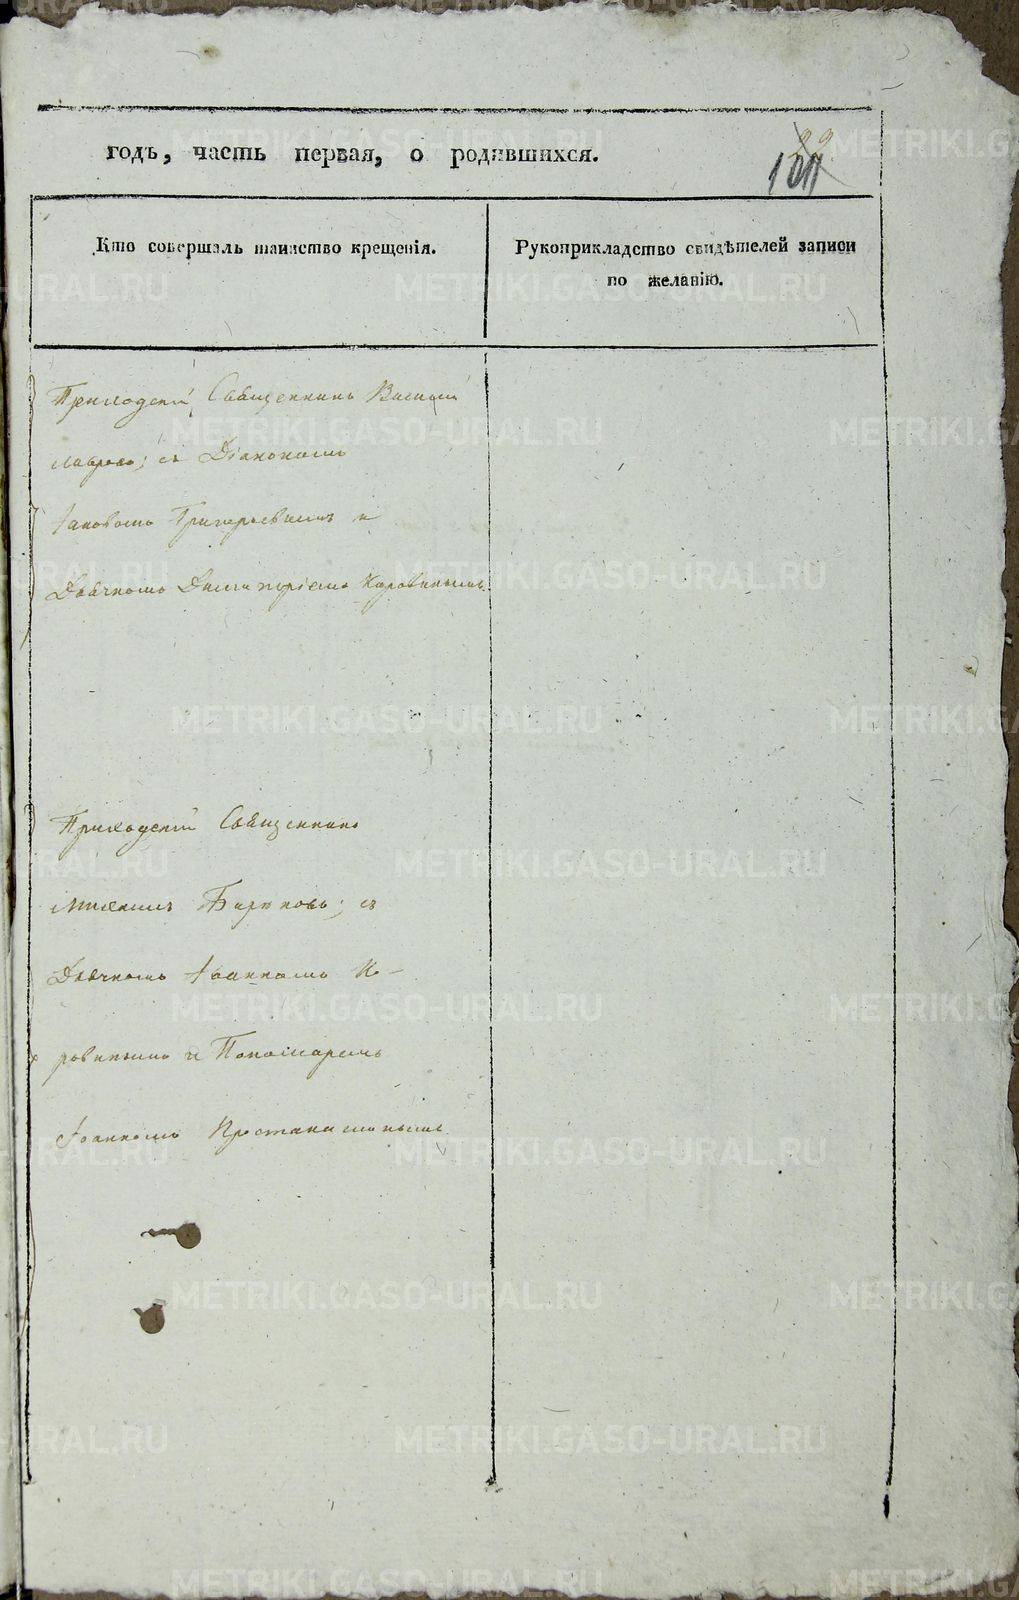 годъ, часть первая, о родившихся.
Кто совершалъ таинство крещенія.
Рукоприкладство свидѣтелей записи
по желанію.
Приходскій Священникъ Василій
съ Діакономъ
Іаковомъ Григорьевымъ и
Дьячкомъ Димитріемъ Коровинымъ
Приходскій Священникъ
Михаилъ Бирюковъ; съ
Дьячкомъ Іоанномъ Ко-
ровинымъ и Пономаремъ
Іоанномъ
METRIKI.GASO-URAL.RU